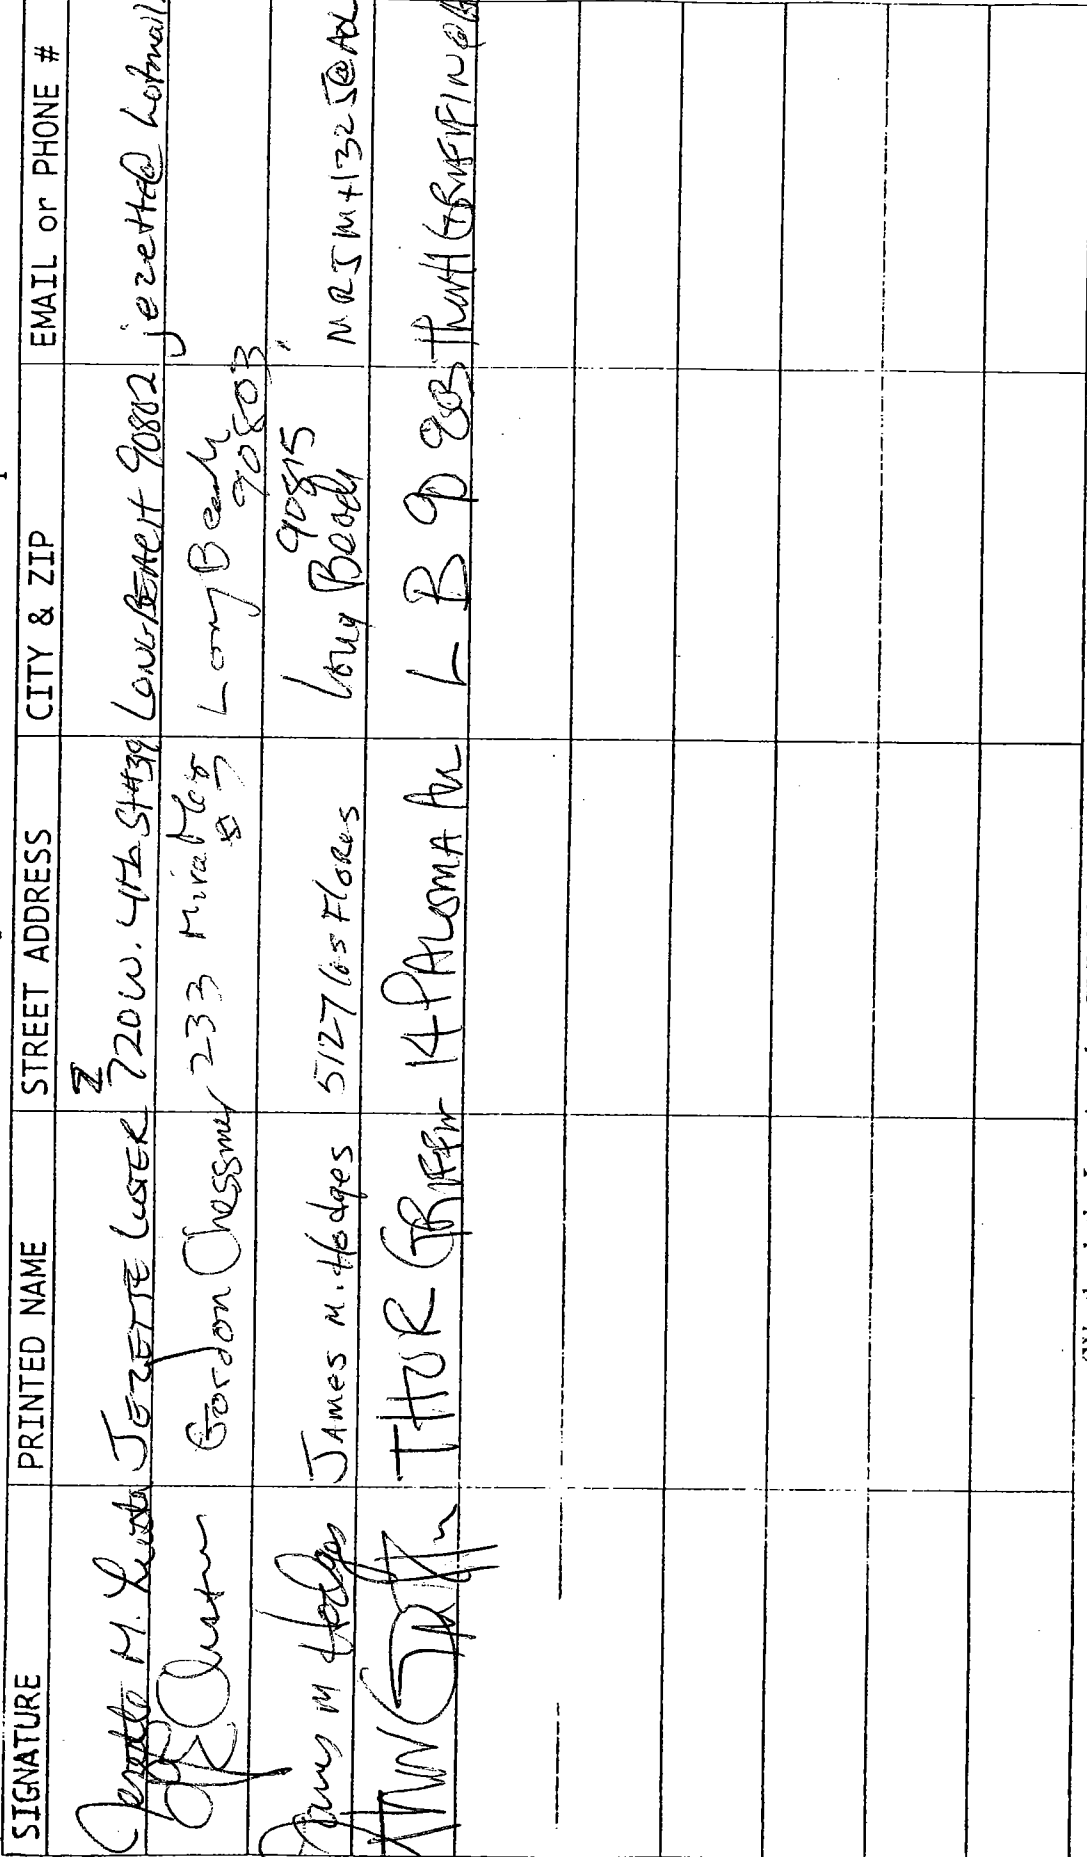 SIGNATURE PRINTED NAME STREET ADDRESS CITY & ZIP EMAIL or PHONE #
Jezette M. Luster JEZETTE LUSTER 720 W. 4th St #39 LONG BEACH 90802 jezette@hotmail.
Gordon Chessmer 233 Miramar Long Beach 90803
James M Hodges JAMES M. Hodges 5127 Los Flores Long Beach 90815 MRJMH1325@AOL
THOR GRIFFIN 14 PALOMA AV L B 90803 THORHGRIFFIN@